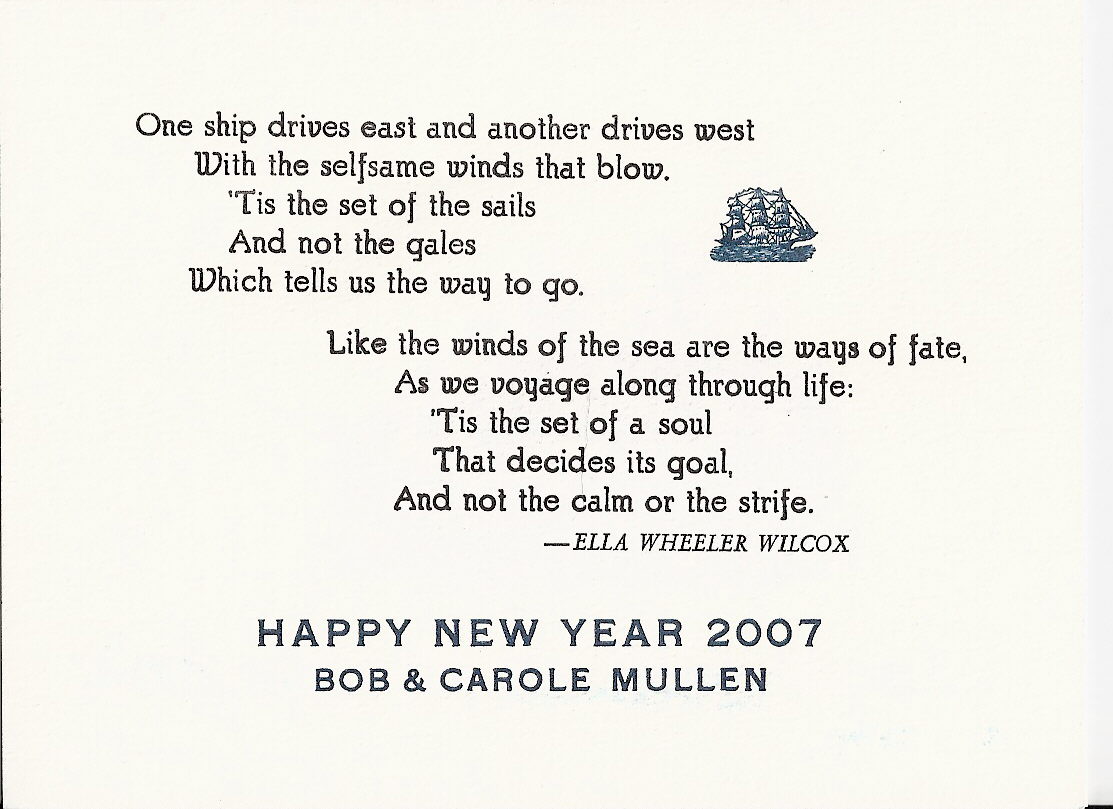 One ship drives east and another drives west
With the selfsame winds that blow.
'Tis the set of the sails
And not the gales
Which tells us the way to go.
Like the winds of the sea are the ways of fate,
As we voyage along through life:
'Tis the set of a soul
That decides its goal,
And not the calm or the strife.
—ELLA WHEELER WILCOX
HAPPY NEW YEAR 2007
BOB & CAROLE MULLEN